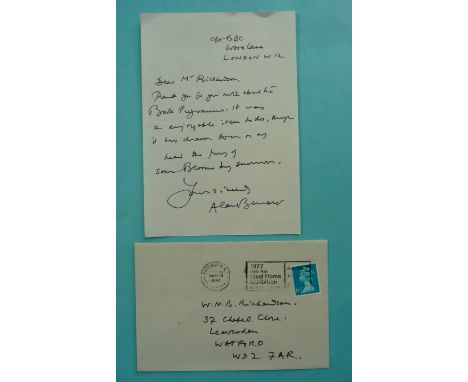 c/o BBC
Wood Lane
LONDON W12
Dear Mr Richardson,
Thank you for your note about the
Book Programme. It was
an enjoyable item to do, though
it has drawn down on my
head the fury of
some Blooms by
Yours sincerely
Alan Bennett
1977
Ideal Home
Exhibition
W.N.B. Richardson.
37 Chapel Close,
Leavesden
WATFORD
WD2 7AR.